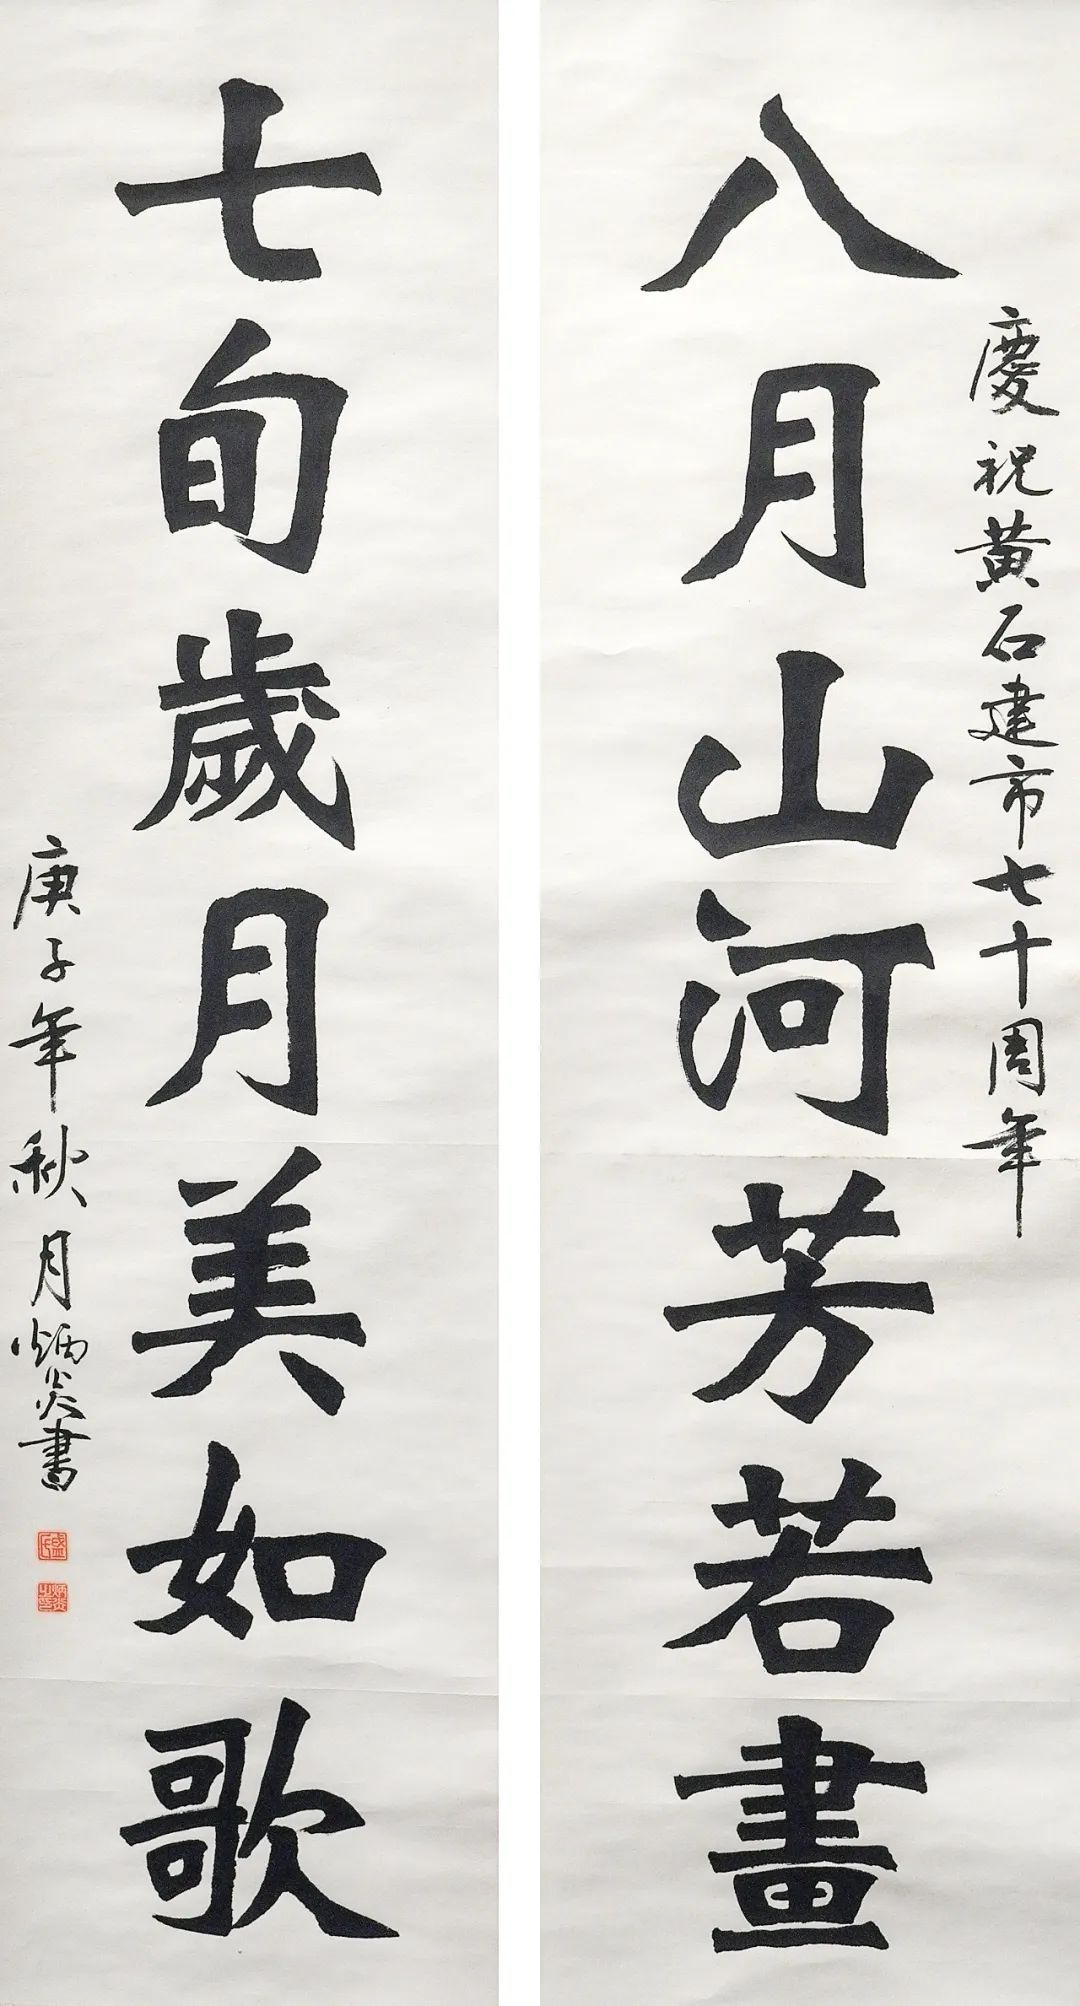 慶祝黃石建市七十周年
八月山河芳若畫
七旬歲月美如歌
庚子年秋月炳炎書
盛氏
炳炎之印